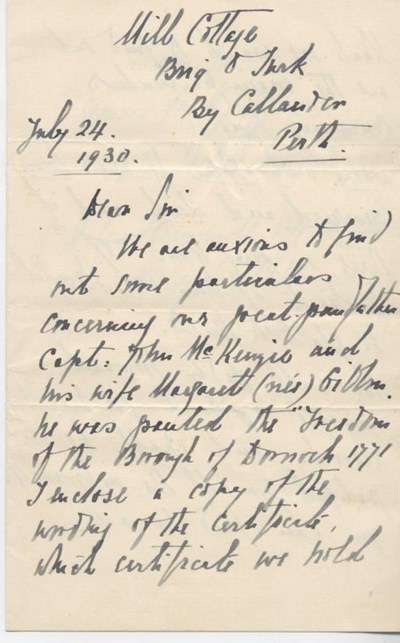 Mill Cottage
Brig O Turk
By Callander
Perth.
July 24.
1930.
Dear Sir
We are anxious to find
out some particulars
concerning our great grandfather
Capt: John McKenzie and
his wife Margaret (née)
he was granted the "Freedom
of the Borough of Dornoch 1771
I enclose a copy of the
wording of the certificate,
which certificate we hold